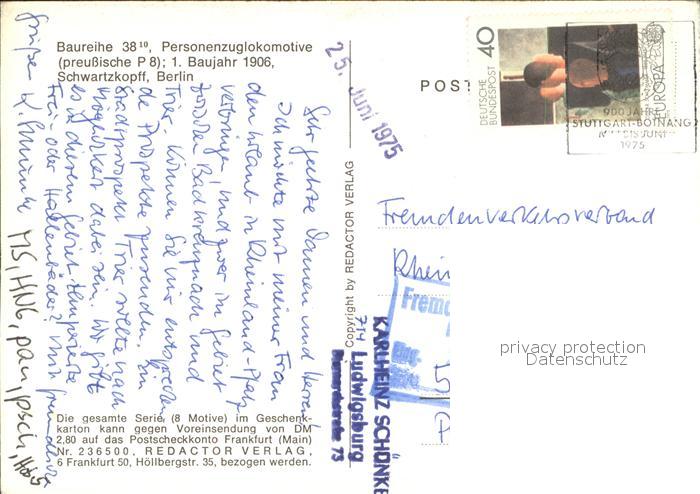 Baureihe 38¹⁰, Personenzuglokomotive
(preußische P 8); 1. Baujahr 1906,
Schwartzkopff, Berlin
25. Juni 1975
POST
DEUTSCHE BUNDESPOST 40
EUROPA
900 JAHRE
STUTTGART-BOTNANG
JUNI
1975
Sehr geehrte Damen und Herren!
Ich möchte mit meiner Frau
den Urlaub in Rheinland-Pfalz
verbringen, und zwar im Gebiet
Bad Kreuznach und
Trier. Können Sie mir entsprechen-
de Prospekte zusenden. Ein
Stadtprospekt Trier sollte nach
Möglichkeit dabei sein. Wo gibt
es in diesem Gebiet temperierte
Frei- oder Hallenbäder? Mit freundlichen
Grüßen K. Schünke
MS, HNG, pau, psch,
Copyright by REDACTOR VERLAG
Fremdenverkehrsverband
Rhein
Frem
KARLHEINZ SCHÜNKE
714 Ludwigsburg
73
privacy protection
Datenschutz
Die gesamte Serie (8 Motive) im Geschenk-
karton kann gegen Voreinsendung von DM
2,80 auf das Postscheckkonto Frankfurt (Main)
Nr. 236500, REDACTOR VERLAG,
6 Frankfurt 50, Höllbergstr. 35, bezogen werden.